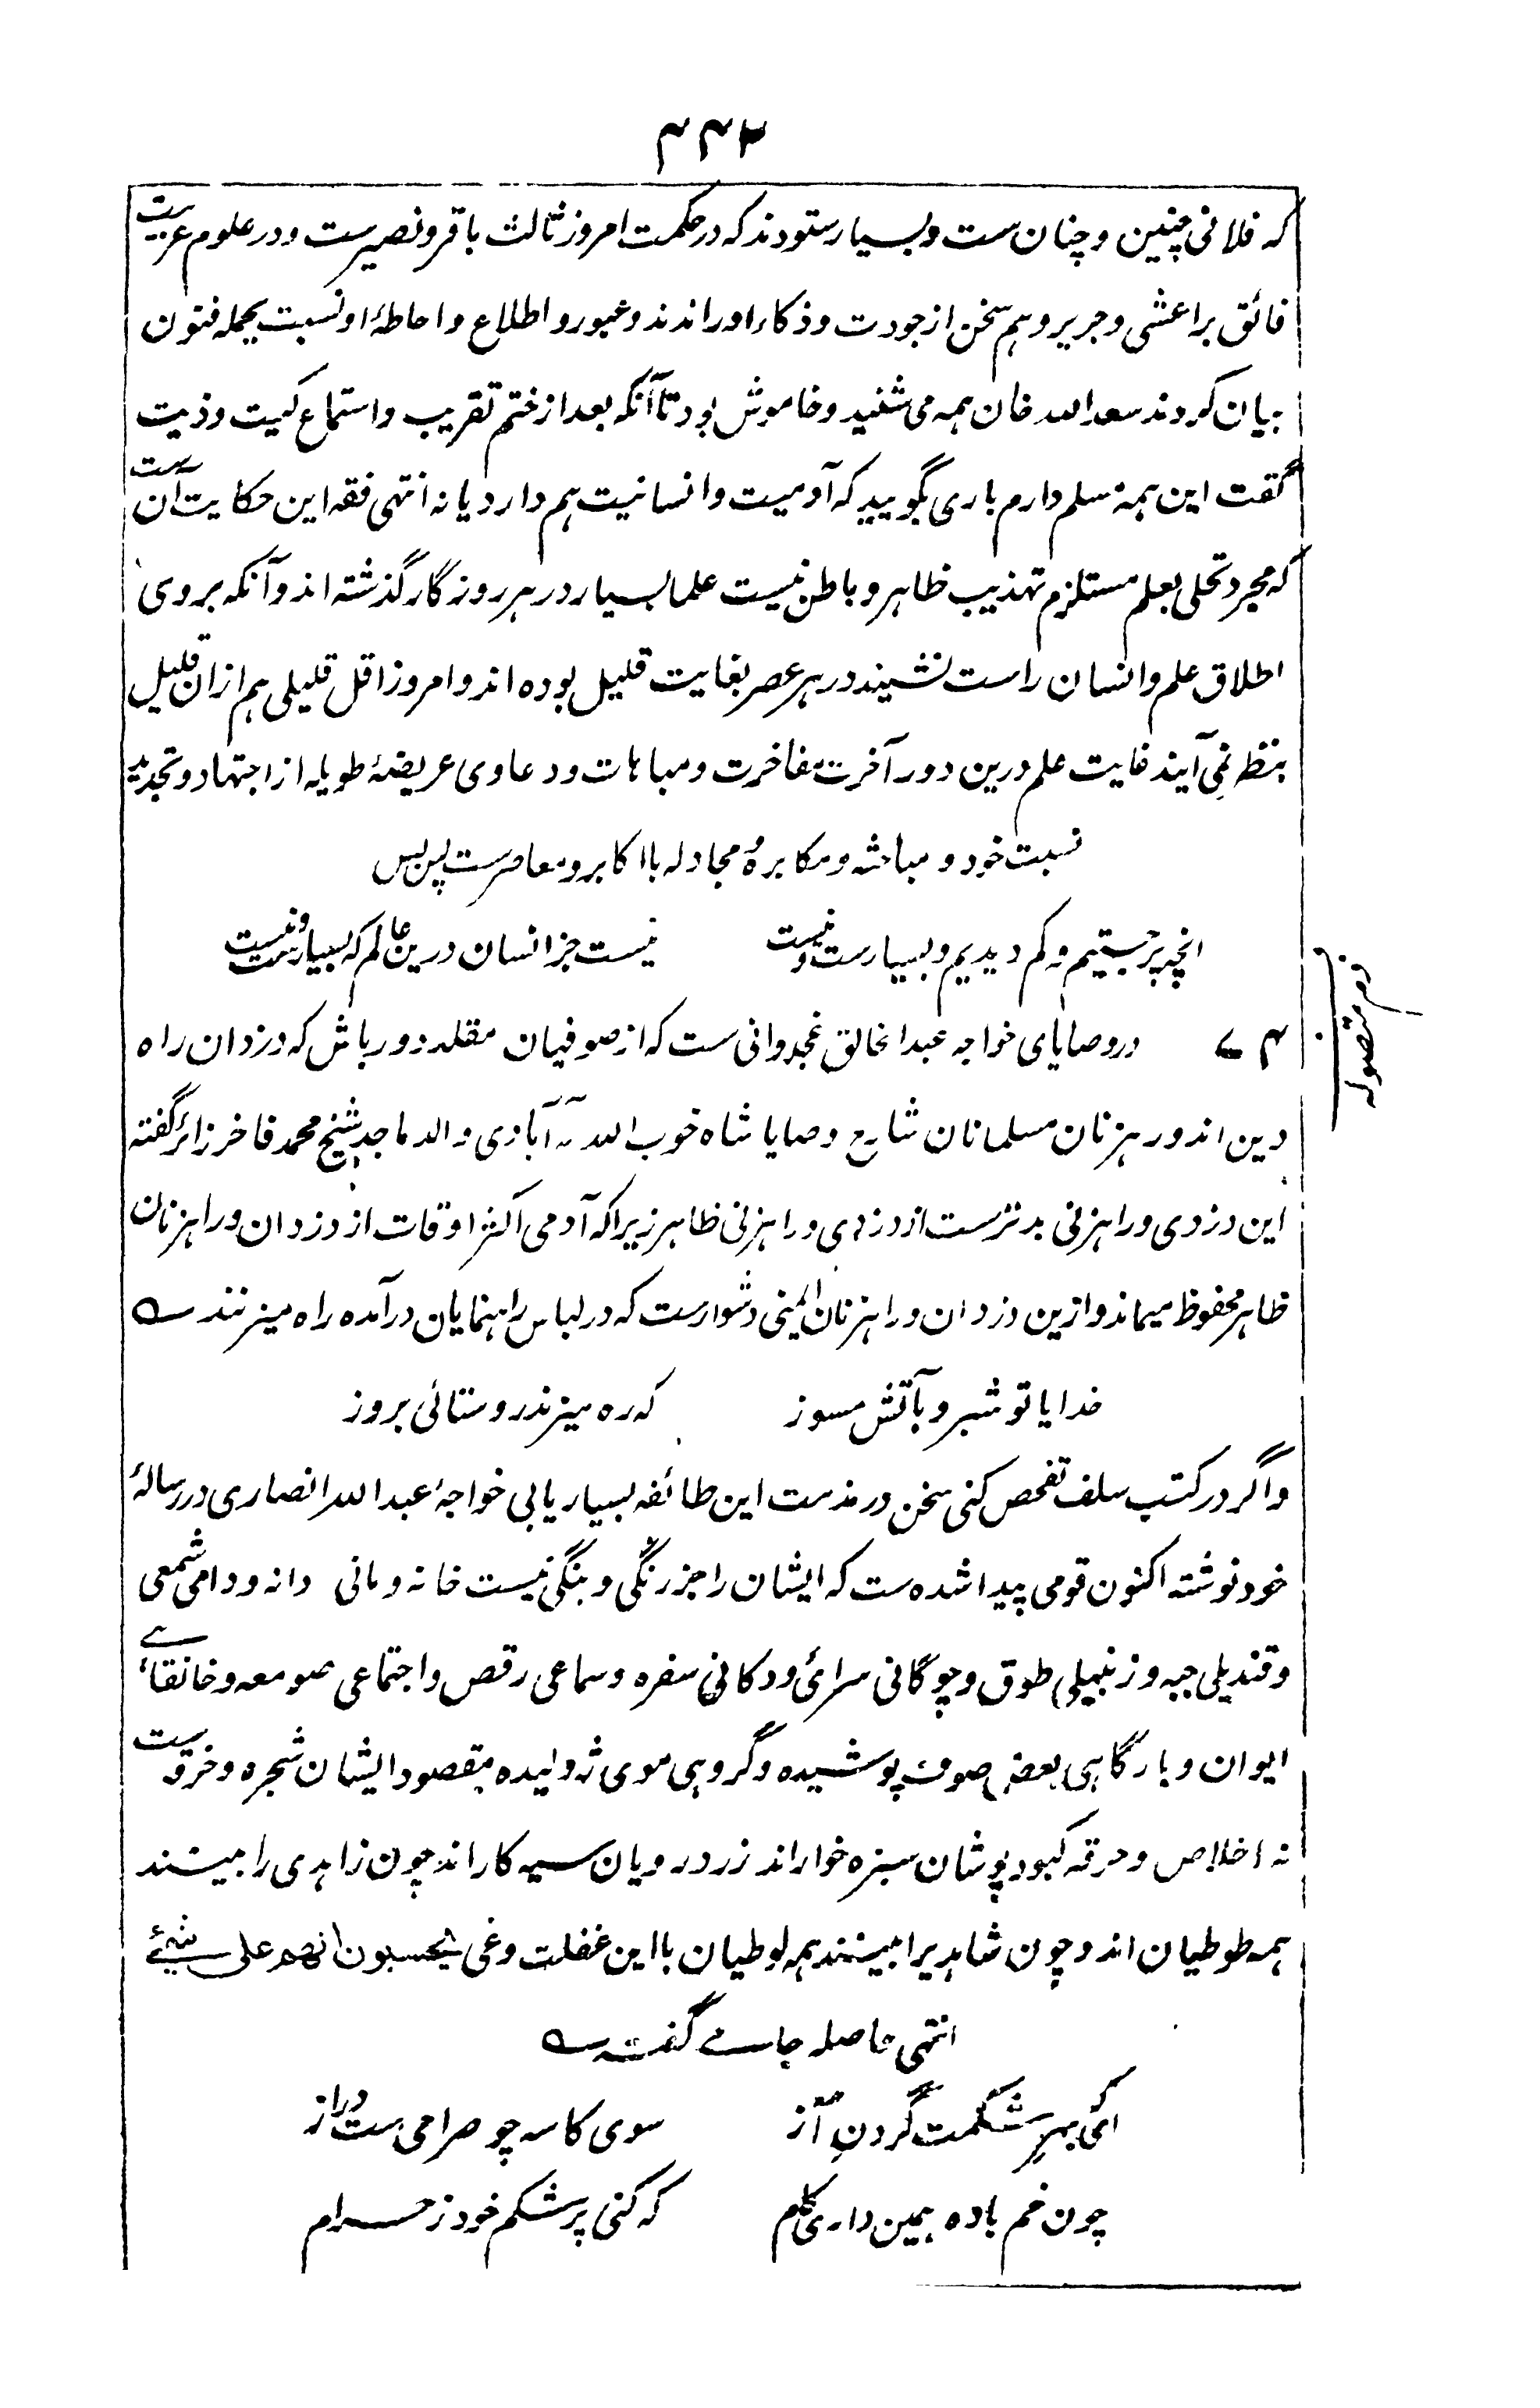 ۴۴۲
که فلانی چنین و چنان ست و بسیار ستودند که در حکمت امروز ثالث باقر و نصیرست و در علوم عربیت
فائق بر اعشی و جریر و هم سخن از جودت و ذکاء او راندند و عبور و اطلاع و احاطهٔ او نسبت بجمله فنون
بیان کردند سعد الله خان همه می شنید و خاموش بود تا آنکه بعد از ختم تقریب و استماع کیت و ذیت
گفت این همه مسلم دارم باری بگویید که آدمیت و انسانیت هم دارد یا نه انتهی فقه این حکایت آن ست
که مجرد تحلی بعلم مستلزم تهذیب ظاهر و باطن نیست علما بسیار در هر روزگار گذشته اند و آنکه بروی
اطلاق علم و انسان راست نشیند در هر عصر بغایت قلیل بوده اند و امروز اقل قلیلی هم ازان قلیل
بنظر نمی آیند غایت علم درین دور آخرت مفاخرت و مباهات و دعاوی عریضهٔ طویله از اجتهاد و تجدید
نسبت خود و مباحثه و مکابره و مجادله با اکابر و معاصرست پس بس
انچه پر جستیم و کم دیدیم و بسیارست و نیست نیست جز انسان درین عالم که بسیارست و نیست
۷۴ در وصایای خواجه عبد الخالق غجدوانی ست که از صوفیان مقلد دور باش که دزدان راه
ذم متصوفه
دین اند و رهزنان مسلمانان شارح وصایا شاه خوب الله اله آبادی والد ماجد شیخ محمد فاخر زائر گفته
این دزدی و راهزنی بدترست از دزدی و راهزنی ظاهر زیرا که آدمی اکثر اوقات از دزدان و راهزنان
ظاهر محفوظ میماند و ازین دزدان و راهزنان ایمنی دشوارست که در لباس راهنمایان درآمده راه میزنند ــه
خدایا تو شبرو بآتش مسوز که ره میزند روستائی بروز
و اگر در کتب سلف تفحص کنی سخن در مذمت این طائفه بسیار یابی خواجه عبد الله انصاری در رسالهٔ
خود نوشته اکنون قومی پیدا شده ست که ایشان را جز رنگی و بنگی نیست خانه و مانی دانه و دامی شمعی
و قندیلی جبه و زنبیلی طوق و چوگانی سرائی و دکانی سفره و سماعی رقص و اجتماعی صومعه و خانقاهی
ایوان و بارگاهی بعضی صوف پوشیده و گروهی موی ژولیده مقصود ایشان شجره و خرقه ست
نه اخلاص و حرقه کبود پوشان سبزه خوار اند زرد رویان سیه کار اند چون زاهدی را بینند
همه طوطیان اند و چون شاهدیرا بینند همه لوطیان با این غفلت و غی یحسبون انهم علی شیئ
انتهی حاصله جامی گفته ــه
ای بهر شکمت گردن آز سوی کاسه چو صراحی ست دراز
چون خم باده همین داری کام که کنی پر شکم خود ز حرام